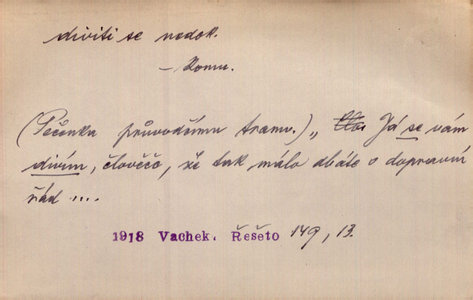 diviti se nedok.
– komu.
(Pěčenka průvodčímu tramv.) „ Já se vám
divím, člověče, že tak málo dbáte o dopravní
řád ....
1918 Vachek. Řešeto 149, 13.